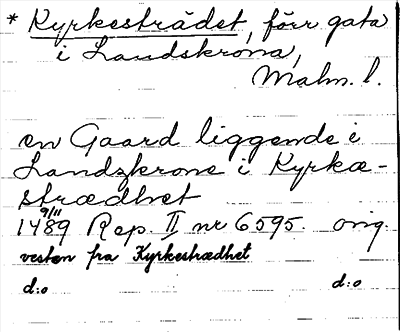 * Kyrkesträdet, förr gata
i Landskrona,
Malm. l.
en Gaard liggende i
Landzkrone i Kyrkæ-
strædhet
9/11
1489 Rep. II nr 6595. orig.
vesten fra Kyrkestrædhet
d:o d:o